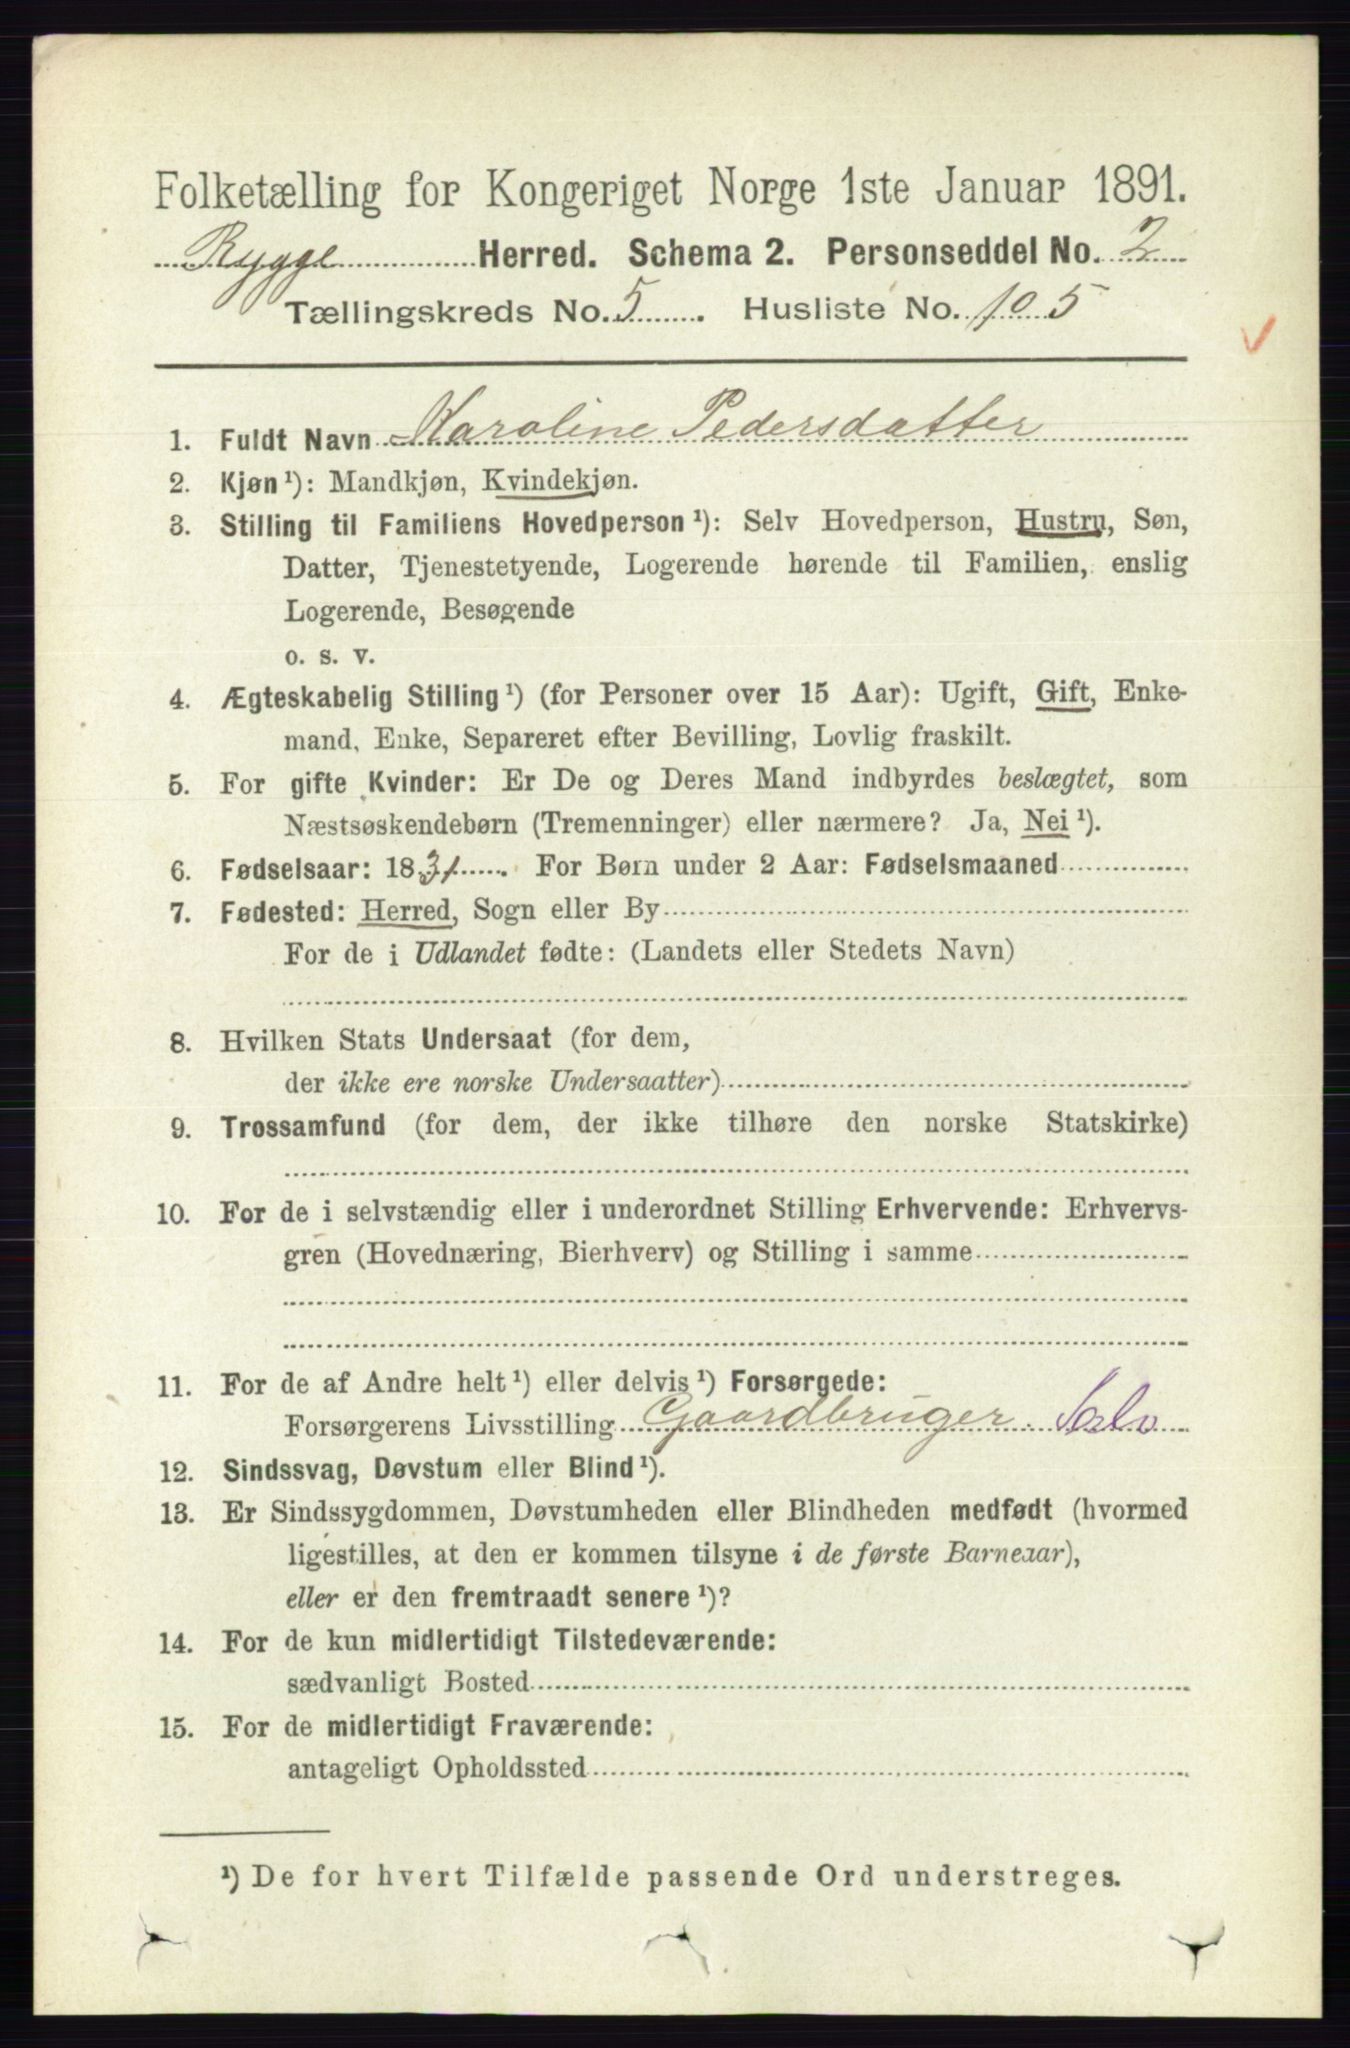 Folketælling for Kongeriget Norge 1ste Januar 1891.
Rygge Herred. Schema 2. Personseddel No. 2
Tællingskreds No. 5 . Husliste No. 105
1. Fuldt Navn Karoline Pedersdatter
2. Kjøn¹): Mandkjøn, Kvindekjøn.
3. Stilling til Familiens Hovedperson¹): Selv Hovedperson, Hustru, Søn,
Datter, Tjenestetyende, Logerende hørende til Familien, enslig
Logerende, Besøgende
o. s. v.
4. Ægteskabelig Stilling¹) (for Personer over 15 Aar): Ugift, Gift, Enke-
mand, Enke, Separeret efter Bevilling, Lovlig fraskilt.
5. For gifte Kvinder: Er De og Deres Mand indbyrdes beslægtet, som
Næstsøskendebørn (Tremenninger) eller nærmere? Ja, Nei¹).
6. Fødselsaar: 1831 . For Børn under 2 Aar: Fødselsmaaned
7. Fødested: Herred, Sogn eller By
For de i Udlandet fødte: (Landets eller Stedets Navn)
8. Hvilken Stats Undersaat (for dem,
der ikke ere norske Undersaatter)
9. Trossamfund (for dem, der ikke tilhøre den norske Statskirke)
10. For de i selvstændig eller i underordnet Stilling Erhvervende: Erhvervs-
gren (Hovednæring, Bierhverv) og Stilling i samme
11. For de af Andre helt¹) eller delvis¹) Forsørgede:
Forsørgerens Livsstilling Gaardbruger. Selv
12. Sindssvag, Døvstum eller Blind¹).
13. Er Sindssygdommen, Døvstumheden eller Blindheden medfødt (hvormed
ligestilles, at den er kommen tilsyne i de første Barneaar),
eller er den fremtraadt senere¹)?
14. For de kun midlertidigt Tilstedeværende:
sædvanligt Bosted
15. For de midlertidigt Fraværende:
antageligt Opholdssted
¹) De for hvert Tilfælde passende Ord understreges.